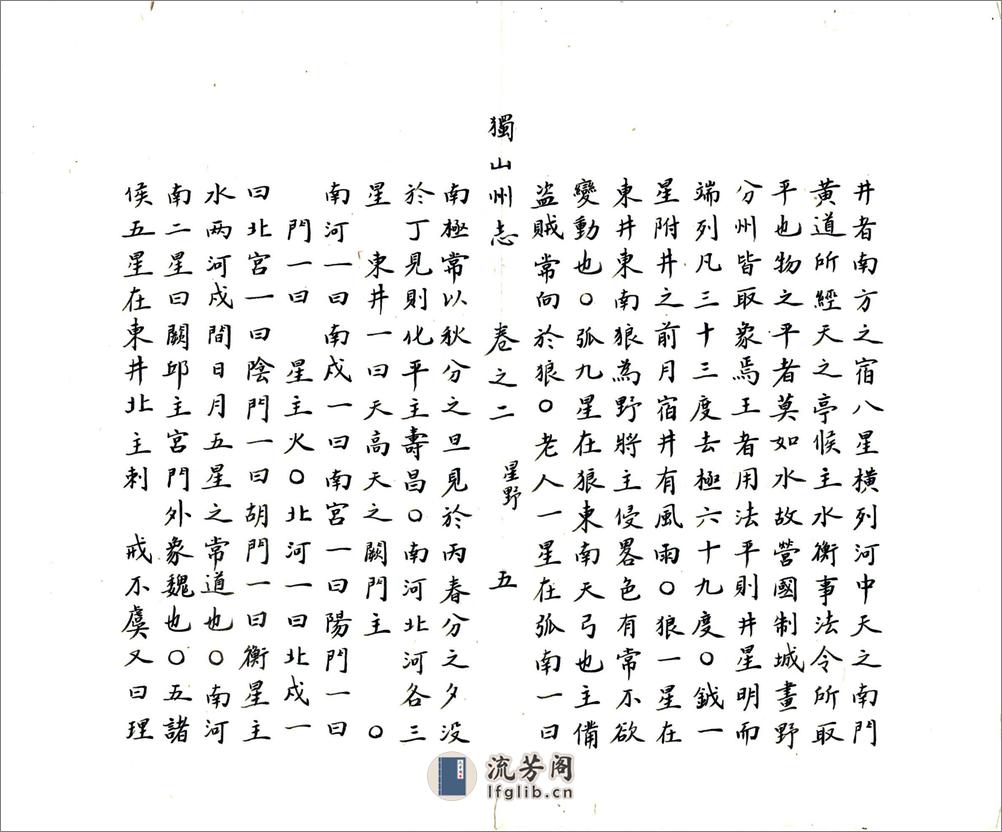 井者南方之宿八星横列河中天之南門
黄道所經天之亭候主水衡事法令所取
平也物之平者莫如水故營國制城畫野
分州皆取象焉王者用法平則井星明而
端列凡三十三度去極六十九度○鉞一
星附井之前月宿井有風雨○狼一星在
東井東南狼為野將主侵畧色有常不欲
變動也○弧九星在狼東南天弓也主備
盜賊常向於狼○老人一星在弧南一曰
獨山州志 卷之二 星野 五
南極常以秋分之旦見於丙春分之夕没
於丁見則化平主壽昌○南河北河各三
星 東井一曰天高天之闕門主 ○
南河一曰南戍一曰南宮一曰陽門一曰
門一曰 星主火○北河一曰北戍一
曰北宮一曰陰門一曰胡門一曰衡星主
水两河戍間日月五星之常道也○南河
南二星曰闕邱主宮門外象魏也○五諸
侯五星在東井北主刺 戒不虞又曰理
流芳阁
lfglib.cn